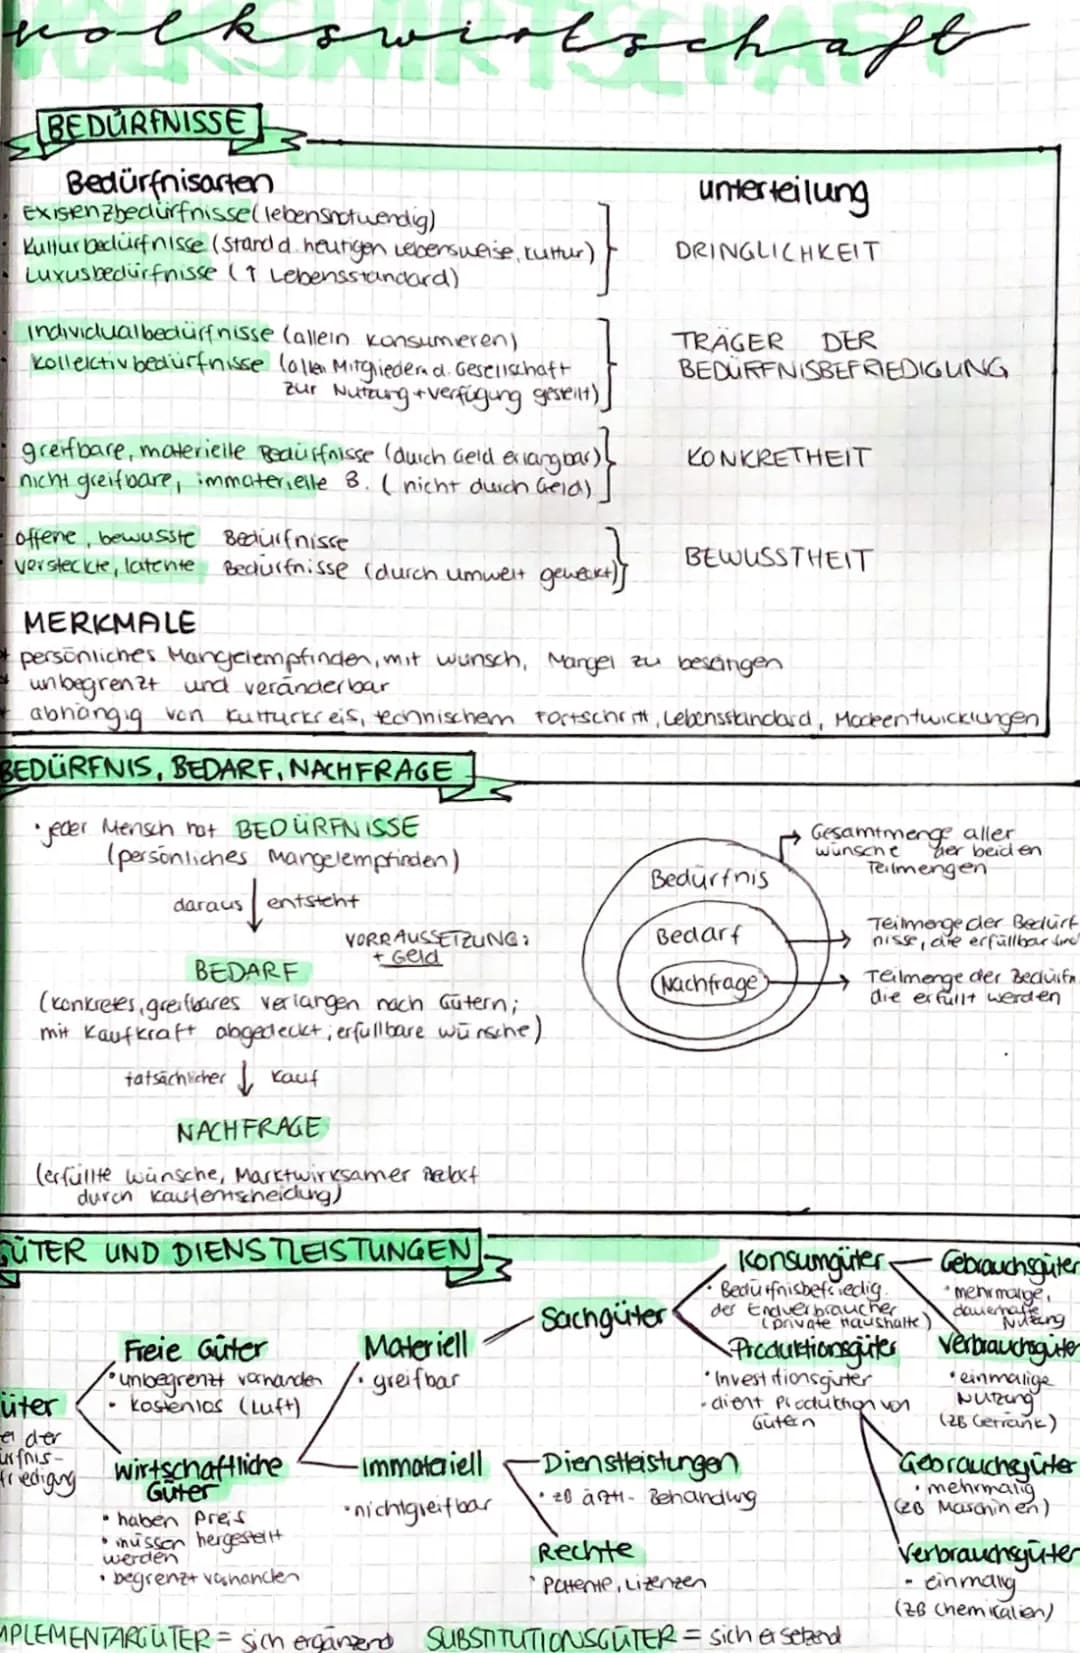 volkswirtschaft
VOLKSWIRTSCHAFT
BEDÜRFNISSE
Bedürfnisarten
unterteilung
Existenzbedürfnisse (lebensnotwendig)
Kulturbedürfnisse (Stand d. heutigen Lebensweise, Kultur)
Luxusbedürfnisse (↑ Lebensstandard)
DRINGLICHKEIT
Individualbedürfnisse (allein konsumieren)
Kollektivbedürfnisse (allen Mitgliedern d. Gesellschaft
zur Nutzung + Verfügung gestellt)
TRÄGER DER
BEDÜRFNISBEFRIEDIGUNG
greifbare, materielle Bedürfnisse (durch Geld erlangbar)
nicht greifbare, immaterielle B. (nicht durch Geld)
KONKRETHEIT
offene, bewusste Bedürfnisse
versteckte, latente Bedürfnisse (durch umwelt geweckt)
BEWUSSTHEIT
MERKMALE
persönliches Mangelempfinden, mit wunsch, Mangel zu beseitigen
unbegrenzt und veränderbar
abhängig von Kulturkreis, technischem Fortschritt, Lebensstandard, Modeentwicklungen
BEDÜRFNIS, BEDARF, NACHFRAGE
• jeder Mensch hat BEDÜRFNISSE
(persönliches Mangelempfinden)
daraus ↓ entsteht
VORRAUSSETZUNG:
+ Geld
BEDARF
(konkretes, greifbares verlangen nach Gütern;
mit Kaufkraft abgedeckt; erfüllbare wünsche)
tatsächlicher ↓ Kauf
NACHFRAGE
(erfüllte wünsche, Marktwirksamer Bedarf
durch Kaufentscheidung)
Bedürfnis
Bedarf
Nachfrage
Gesamtmenge aller
wünsche der beiden
Teilmengen
Teilmenge der Bedürf
nisse, die erfüllbar sind
Teilmenge der Bedürfn
die erfüllt werden
GÜTER UND DIENSTLEISTUNGEN
üter
der
ürfnis-
friedigung
Freie Güter
• unbegrenzt vorhanden
• kostenlos (Luft)
wirtschaftliche
Güter
• haben Preis
• müssen hergestellt
werden
• begrenzt vorhanden
Materiell
• greifbar
Immateriell
• nichtgreifbar
Sachgüter
Dienstleistungen
• zB ärztl. Behandlung
Rechte
• Patente, Lizenzen
Konsumgüter
• Bedürfnisbefriedig.
der Endverbraucher
(private Haushalte)
Produktionsgüter
• Investitionsgüter
- dient Produktion von
Gütern
Gebrauchsgüter
• mehrmalige,
dauerhafte
Nutzung
Verbrauchsgüter
• einmalige
Nutzung
(zB Getränk)
Gebrauchsgüter
• mehrmalig
(zB Maschinen)
Verbrauchsgüter
- einmalig
(zB Chemikalien)
MPLEMENTARGÜTER = sich ergänzend SUBSTITUTIONSGÜTER = sich ersetzend